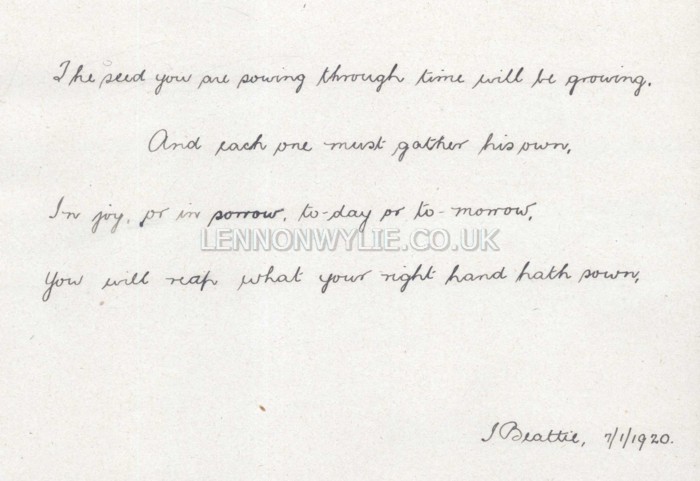 The seed you are sowing through time will be growing.
And each one must gather his own,
In joy, or in sorrow, to-day or to-morrow,
LENNONWYLIE.CO.UK
You will reap what your right hand hath sown,
J Beattie, 7/1/1920.